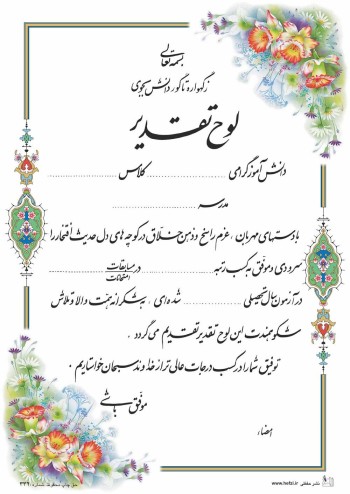 بسمه تعالی
ز گهواره تا گور دانش بجوی
لوح تقدیر
دانش آموز گرامی کلاس
مدرسه
با دستهای مهربان، عزم راسخ و ذهن خلاق در کوچه های دل حدیث افتخار را
سرودی و موفق به کسب رتبه در مسابقات
امتحانات
در آزمون سال تحصیلی شده ای، بشکرانه همت والا و تلاش
شکوهمندت این لوح تقدیر تقدیم می گردد.
توفیق شما را در کسب درجات عالی تر از خداوند سبحان خواستاریم.
موفق باشی
امضاء
حق چاپ محفوظ شماره ۳۳۹
نشر حافظی www.hefzi.ir